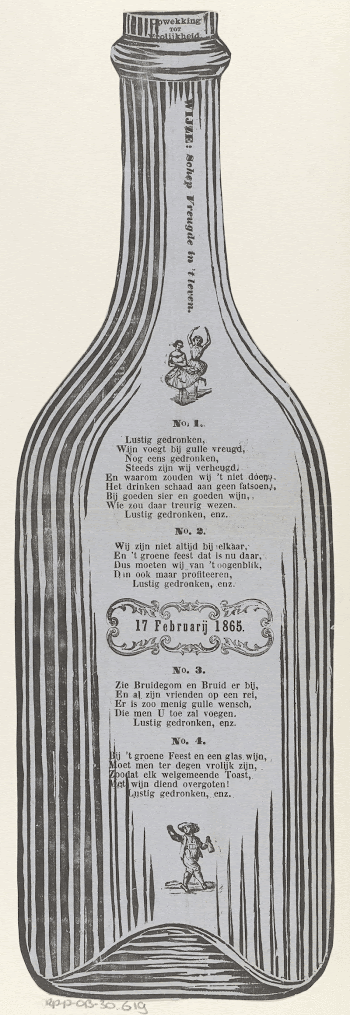 Opwekking
TOT
Vrolijkheid.
WIJZE: Schep Vreugde in 't leven.
No. 1.
Lustig gedronken,
Wijn voegt bij gulle vreugd,
Nog eens gedronken,
Steeds zijn wij verheugd.
En waarom zouden wij 't niet doen,
Het drinken schaad aan geen fatsoen,
Bij goeden sier en goeden wijn,
Wie zou daar treurig wezen.
Lustig gedronken, enz.
No. 2.
Wij zijn niet altijd bij elkaar,
En 't groene feest dat is nu daar,
Dus moeten wij van 't oogenblik,
Dan ook maar profiteeren,
Lustig gedronken, enz.
17 Februarij 1865.
No. 3.
Zie Bruidegom en Bruid er bij,
En al zijn vrienden op een rei,
Er is zoo menig gulle wensch,
Die men U toe zal voegen.
Lustig gedronken, enz.
No. 4.
Bij 't groene Feest en een glas wijn,
Moet men ter degen vrolijk zijn,
Zoodat elk welgemeende Toast,
Met wijn diend overgoten!
Lustig gedronken, enz.
RP-P-OB-30.619